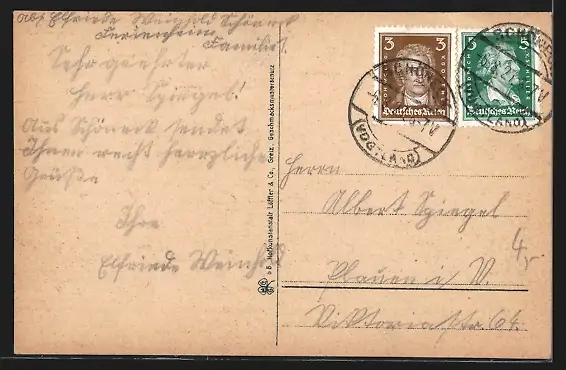 Abs. Elfriede Weinhold Schöneck
Ferienheim
Familie
Sehr geehrter
Herr Spiegel!
Aus Schöneck sendet
Ihnen recht herzliche
Grüße
Ihre
Elfriede Weinhold
68 Reklamenanstalt Löffler & Co., Greiz. Geschmacksmusterschutz
3 3
Deutsches Reich
5 5
FRIEDRICH
Deutsches Reich
(VOGTLAND)
Herrn
Albert Spiegel
Plauen i/V.
Viktoriastr. 64.
4,-